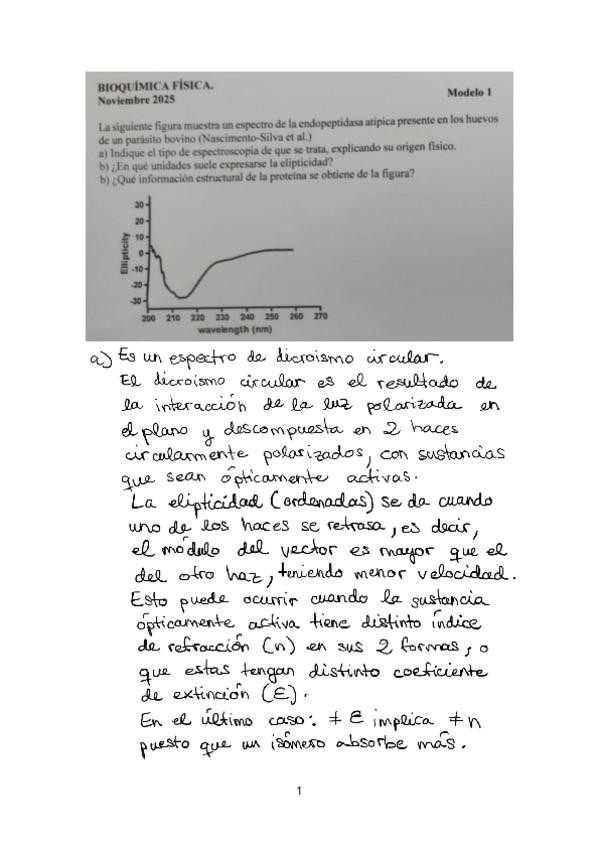 BIOQUÍMICA FÍSICA.
Noviembre 2025
Modelo 1
La siguiente figura muestra un espectro de la endopeptidasa atípica presente en los huevos
de un parásito bovino (Nascimento-Silva et al.)
a) Indique el tipo de espectroscopia de que se trata, explicando su origen físico.
b) ¿En qué unidades suele expresarse la elipticidad?
b) ¿Qué información estructural de la proteína se obtiene de la figura?
30
20
10
0
-10
-20
-30
Ellipticity
200 210 220 230 240 250 260 270
wavelength (nm)
a) Es un espectro de dicroismo circular.
El dicroismo circular es el resultado de
la interacción de la luz polarizada en
el plano y descompuesta en 2 haces
circularmente polarizados, con sustancias
que sean ópticamente activas.
La elipticidad (ordenadas) se da cuando
uno de los haces se retrasa, es decir,
el módulo del vector es mayor que el
del otro haz, teniendo menor velocidad.
Esto puede ocurrir cuando la sustancia
ópticamente activa tiene distinto índice
de refracción (n) en sus 2 formas, o
que estas tengan distinto coeficiente
de extinción (Ɛ).
En el último caso: ≠ Ɛ implica ≠ n
puesto que un isómero absorbe más.
1